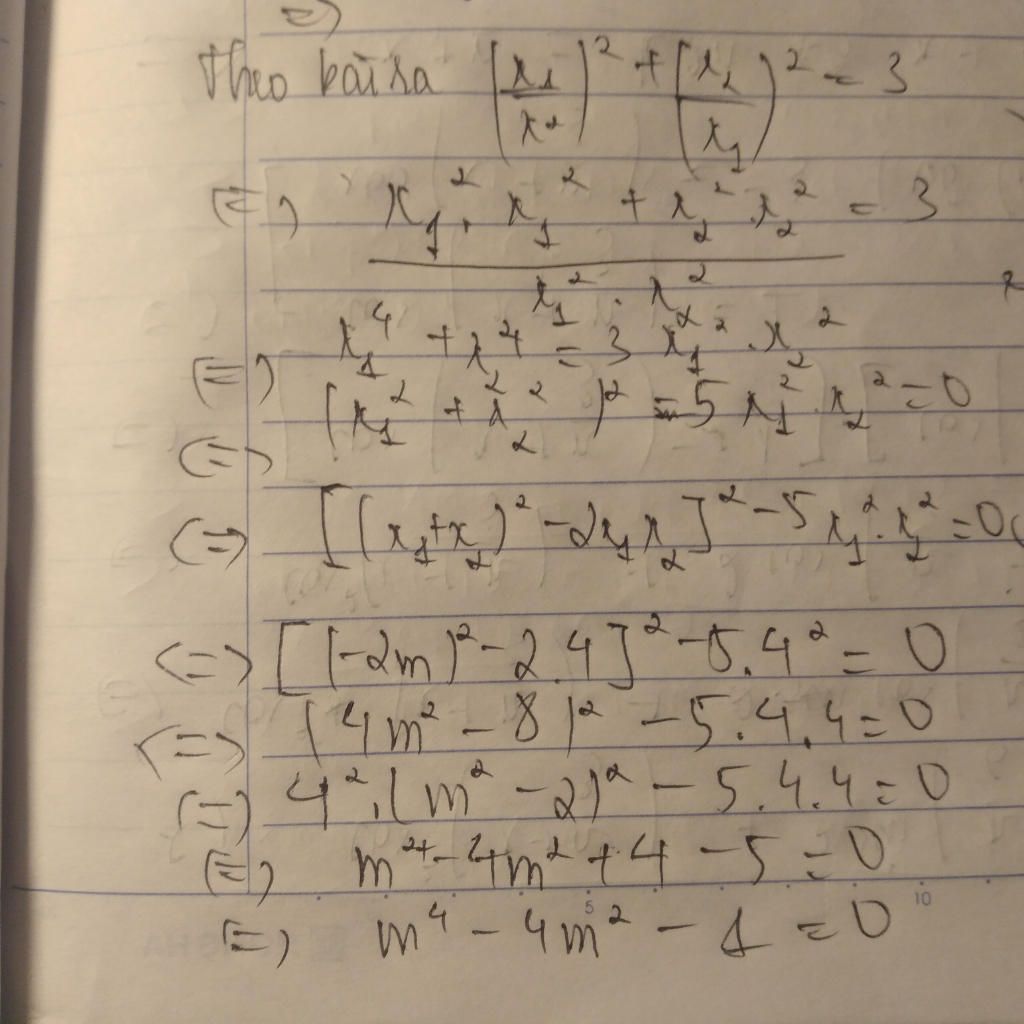 =)
Theo bài ra (x₁/x₂)² + (x₂/x₁)² = 3
(=) (x₁².x₁² + x₂².x₂²)/(x₁².x₂²) = 3
(=) x₁⁴ + x₂⁴ = 3 x₁².x₂²
(=) (x₁² + x₂²)² - 5 x₁².x₂² = 0
(=) [(x₁+x₂)² - 2x₁x₂]² - 5 x₁².x₂² = 0
(=) [(-2m)² - 2.4]² - 5.4² = 0
(=) (4m² - 8)² - 5.4.4 = 0
(=) 4².(m² - 2)² - 5.4.4 = 0
(=) m⁴ - 4m² + 4 - 5 = 0
5 10
(=) m⁴ - 4m² - 1 = 0